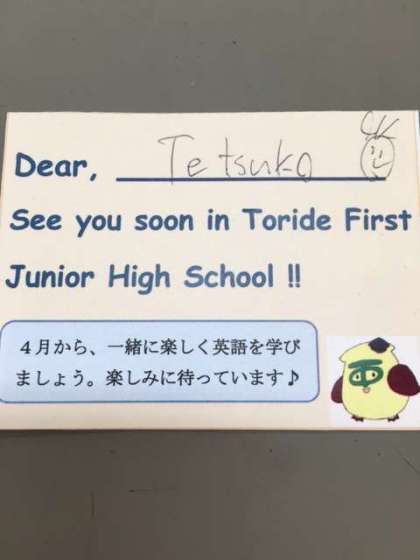 Dear, Tetsuko
See you soon in Toride First
Junior High School !!
4月から、一緒に楽しく英語を学び
ましょう。楽しみに待っています♪